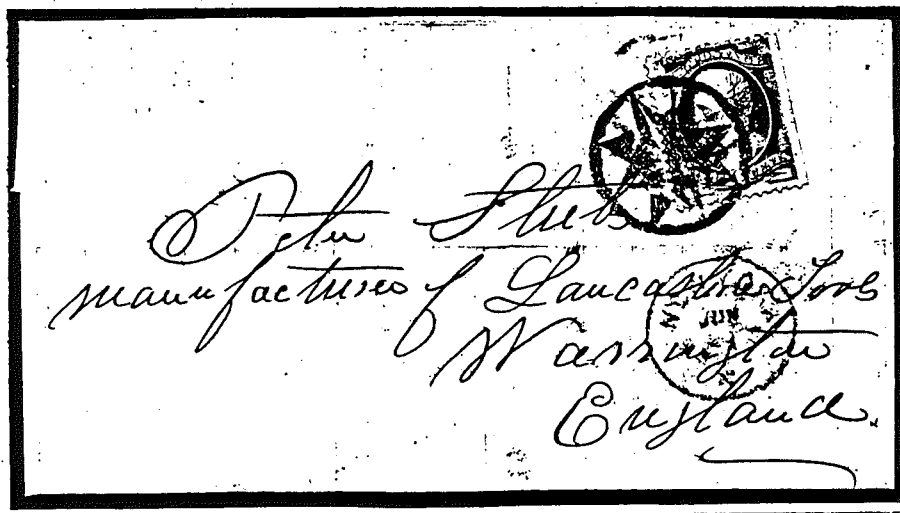 Peter Stubs
manufacturer of Lancashire Tools
Warrington
England.
JUN